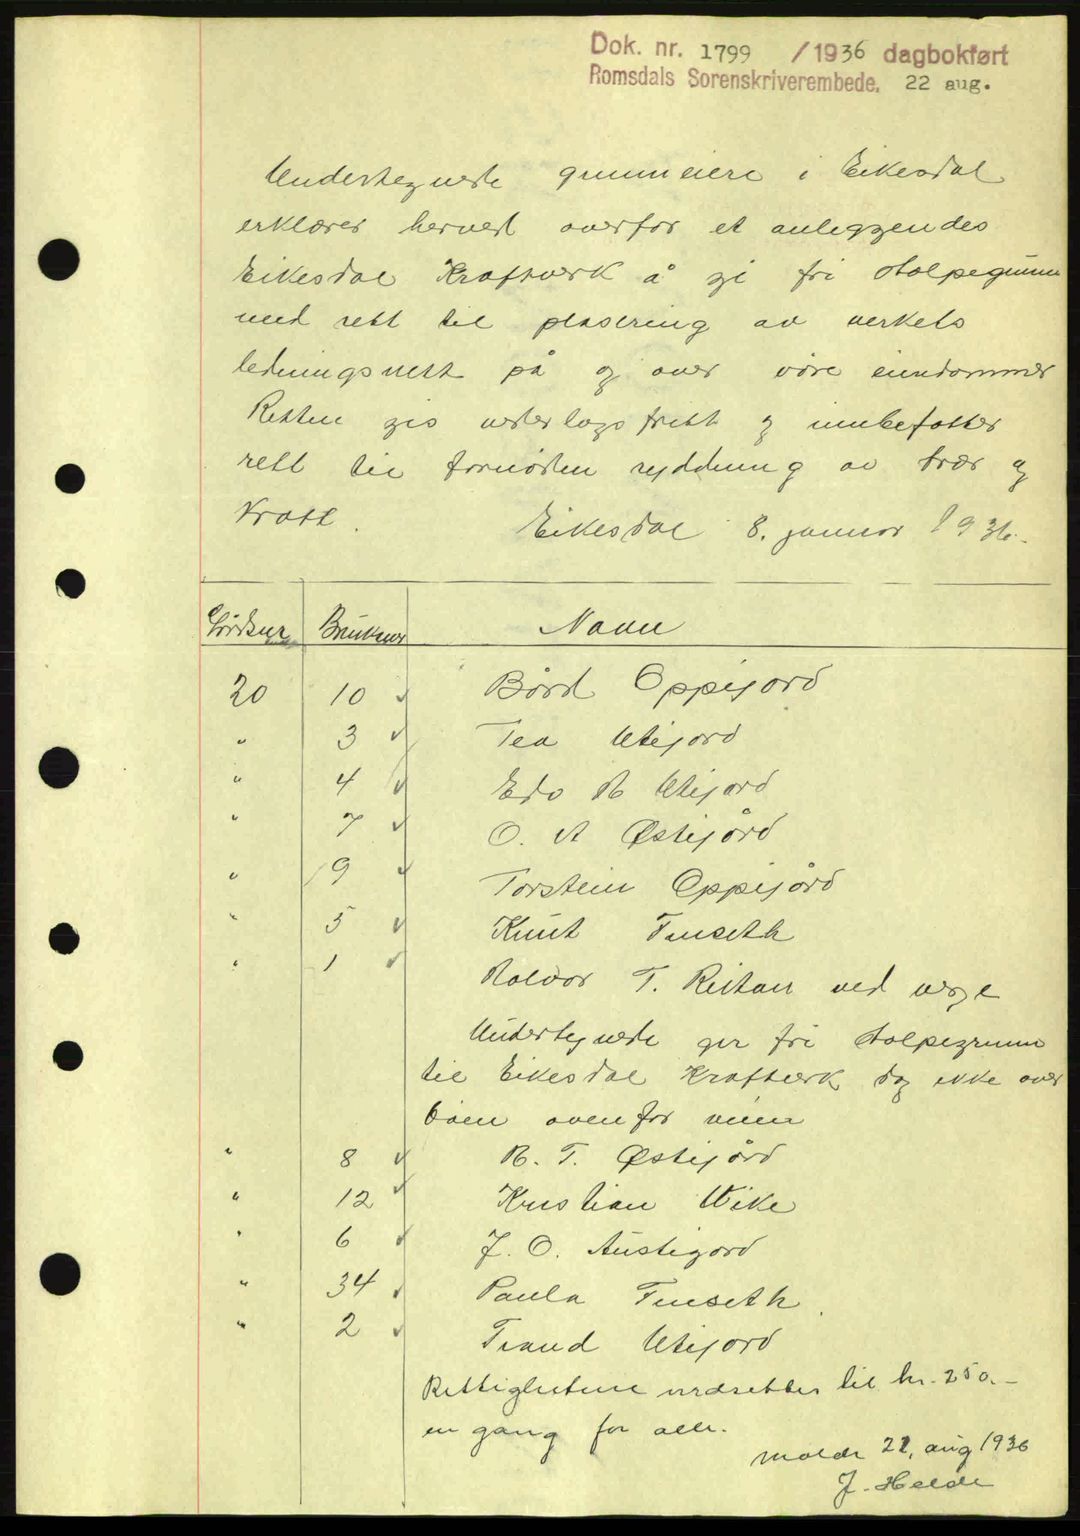 Dok. nr. 1799 /1936 dagbokført
Romsdals Sorenskriverembede. 22 aug.
Undertegnede grunneiere i Eikesdal
erklærer herved overfor et anleggendes
Eikesdal Kraftverk å gi fri stolpegrunn
med rett til plasering av verkets
ledningsnett på og over våre eiendommer
Retten gis vederlagsfritt og innbefatter
rett til fornøden ryddning av trær og
kratt. Eikesdal 8. januar 1936.
Gårdsnr Bruksnr Navn
20 10 Bård Oppigård
" 3 Tea Utigård
" 4 Edv R Utigård
" 7 O. A Østigård
" 9 Torstein Oppigård
" 5 Knut Finseth
" 1 Halvor T. Reitan ved verge
Undertegnede gir fri stolpegrunn
til Eikesdal Kraftverk dog ikke over
bøen ovenfor veien
" 8 R. T. Østigård
" 12 Kristian Wike
" 6 J. O. Austigard
" 34 Paula Finseth
" 2 Trand Utigård
Rettighetene verdsettes til kr. 250.-
en gang for alle.
Molde 22. aug 1936
J. Helde